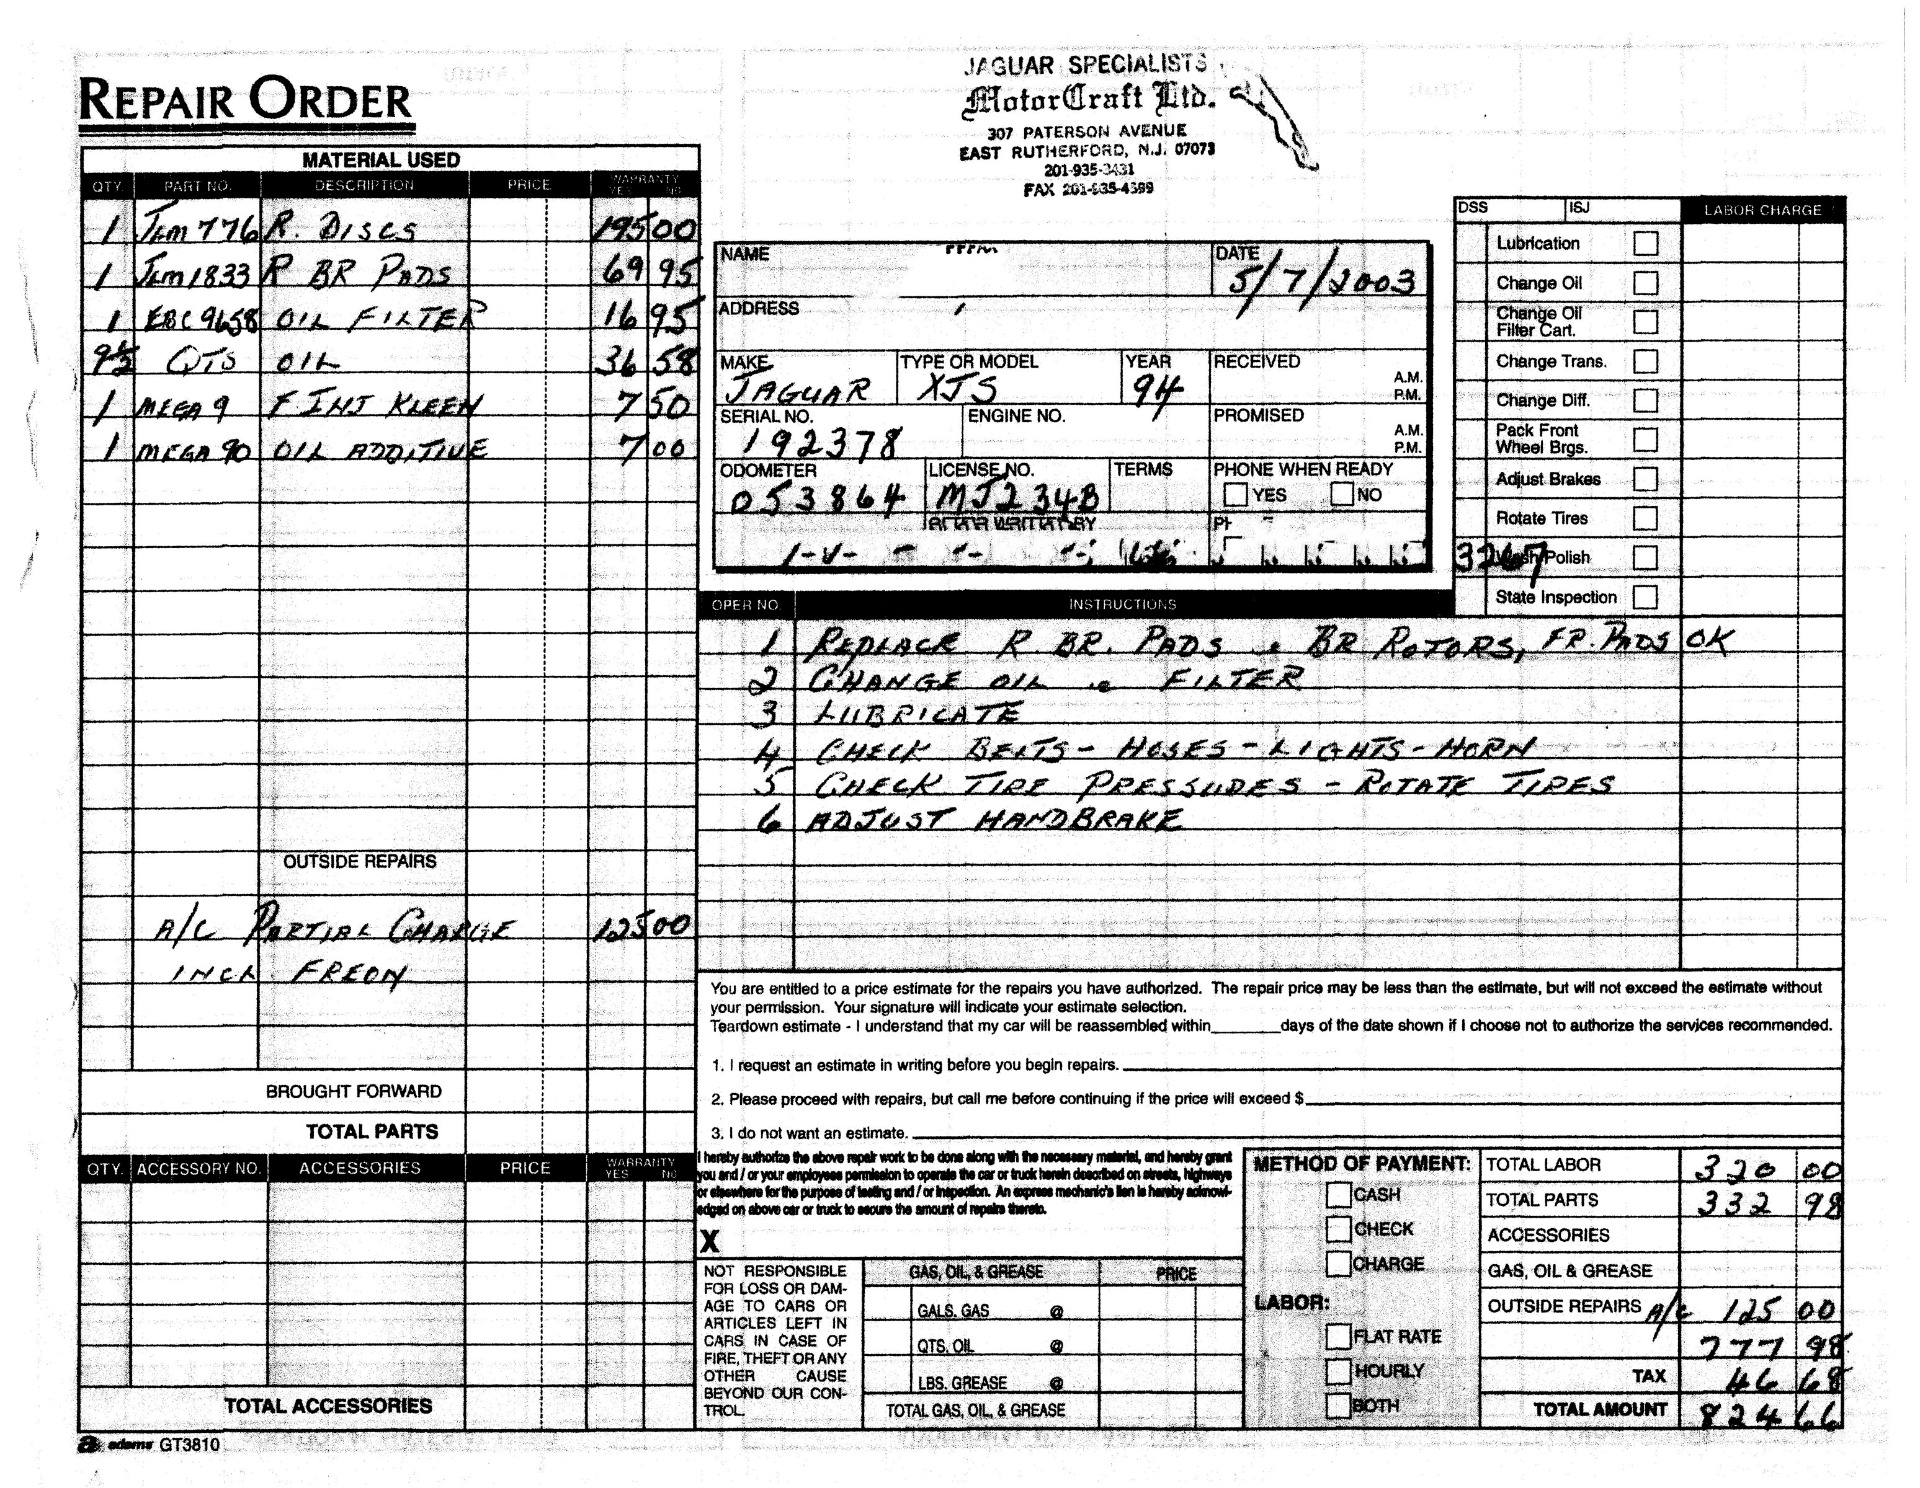 REPAIR ORDER
JAGUAR SPECIALISTS
MotorCraft Ltd.
307 PATERSON AVENUE
EAST RUTHERFORD, N.J. 07073
201-935-3431
FAX 201-935-4599
MATERIAL USED
QTY. PART NO. DESCRIPTION PRICE WARRANTY YES NO
1 JLM 776 R. DISCS 195 00
1 JLM 1833 R BR PADS 69 95
1 EBC 9658 OIL FILTER 16 95
9 1/2 QTS OIL 36 58
1 MEGA 9 F INJ KLEEN 7 50
1 MEGA 90 OIL ADDITIVE 7 00
OUTSIDE REPAIRS
A/C PARTIAL CHARGE 125 00
INCL FREON
BROUGHT FORWARD
TOTAL PARTS
QTY. ACCESSORY NO. ACCESSORIES PRICE WARRANTY YES NO
TOTAL ACCESSORIES
adams GT3810
NAME
DATE 5/7/2003
ADDRESS
MAKE JAGUAR
TYPE OR MODEL XJS
YEAR 94
RECEIVED A.M. P.M.
SERIAL NO. 192378
ENGINE NO.
PROMISED A.M. P.M.
ODOMETER 053864
LICENSE NO. MJ234B
TERMS
PHONE WHEN READY
YES NO
DSS ISJ LABOR CHARGE
Lubrication
Change Oil
Change Oil
Filter Cart.
Change Trans.
Change Diff.
Pack Front
Wheel Brgs.
Adjust Brakes
Rotate Tires
3267 Wash Polish
State Inspection
OPER NO. INSTRUCTIONS
1 REPLACE R. BR. PADS & BR ROTORS, FR. PADS OK
2 CHANGE OIL & FILTER
3 LUBRICATE
4 CHECK BELTS - HOSES - LIGHTS - HORN
5 CHECK TIRE PRESSURES - ROTATE TIRES
6 ADJUST HANDBRAKE
You are entitled to a price estimate for the repairs you have authorized. The repair price may be less than the estimate, but will not exceed the estimate without
your permission. Your signature will indicate your estimate selection.
Teardown estimate - I understand that my car will be reassembled within_______days of the date shown if I choose not to authorize the services recommended.
1. I request an estimate in writing before you begin repairs.
2. Please proceed with repairs, but call me before continuing if the price will exceed $
3. I do not want an estimate.
I hereby authorize the above repair work to be done along with the necessary material, and hereby grant
you and / or your employees permission to operate the car or truck herein described on streets, highways
or elsewhere for the purpose of testing and / or inspection. An express mechanic's lien is hereby acknowl-
edged on above car or truck to secure the amount of repairs thereto.
X
NOT RESPONSIBLE
FOR LOSS OR DAM-
AGE TO CARS OR
ARTICLES LEFT IN
CARS IN CASE OF
FIRE, THEFT OR ANY
OTHER CAUSE
BEYOND OUR CON-
TROL.
GAS, OIL, & GREASE PRICE
GALS. GAS @
QTS. OIL @
LBS. GREASE @
TOTAL GAS, OIL, & GREASE
METHOD OF PAYMENT:
CASH
CHECK
CHARGE
LABOR:
FLAT RATE
HOURLY
BOTH
TOTAL LABOR 320 00
TOTAL PARTS 332 98
ACCESSORIES
GAS, OIL & GREASE
OUTSIDE REPAIRS A/C 125 00
777 98
TAX 46 68
TOTAL AMOUNT 824 66